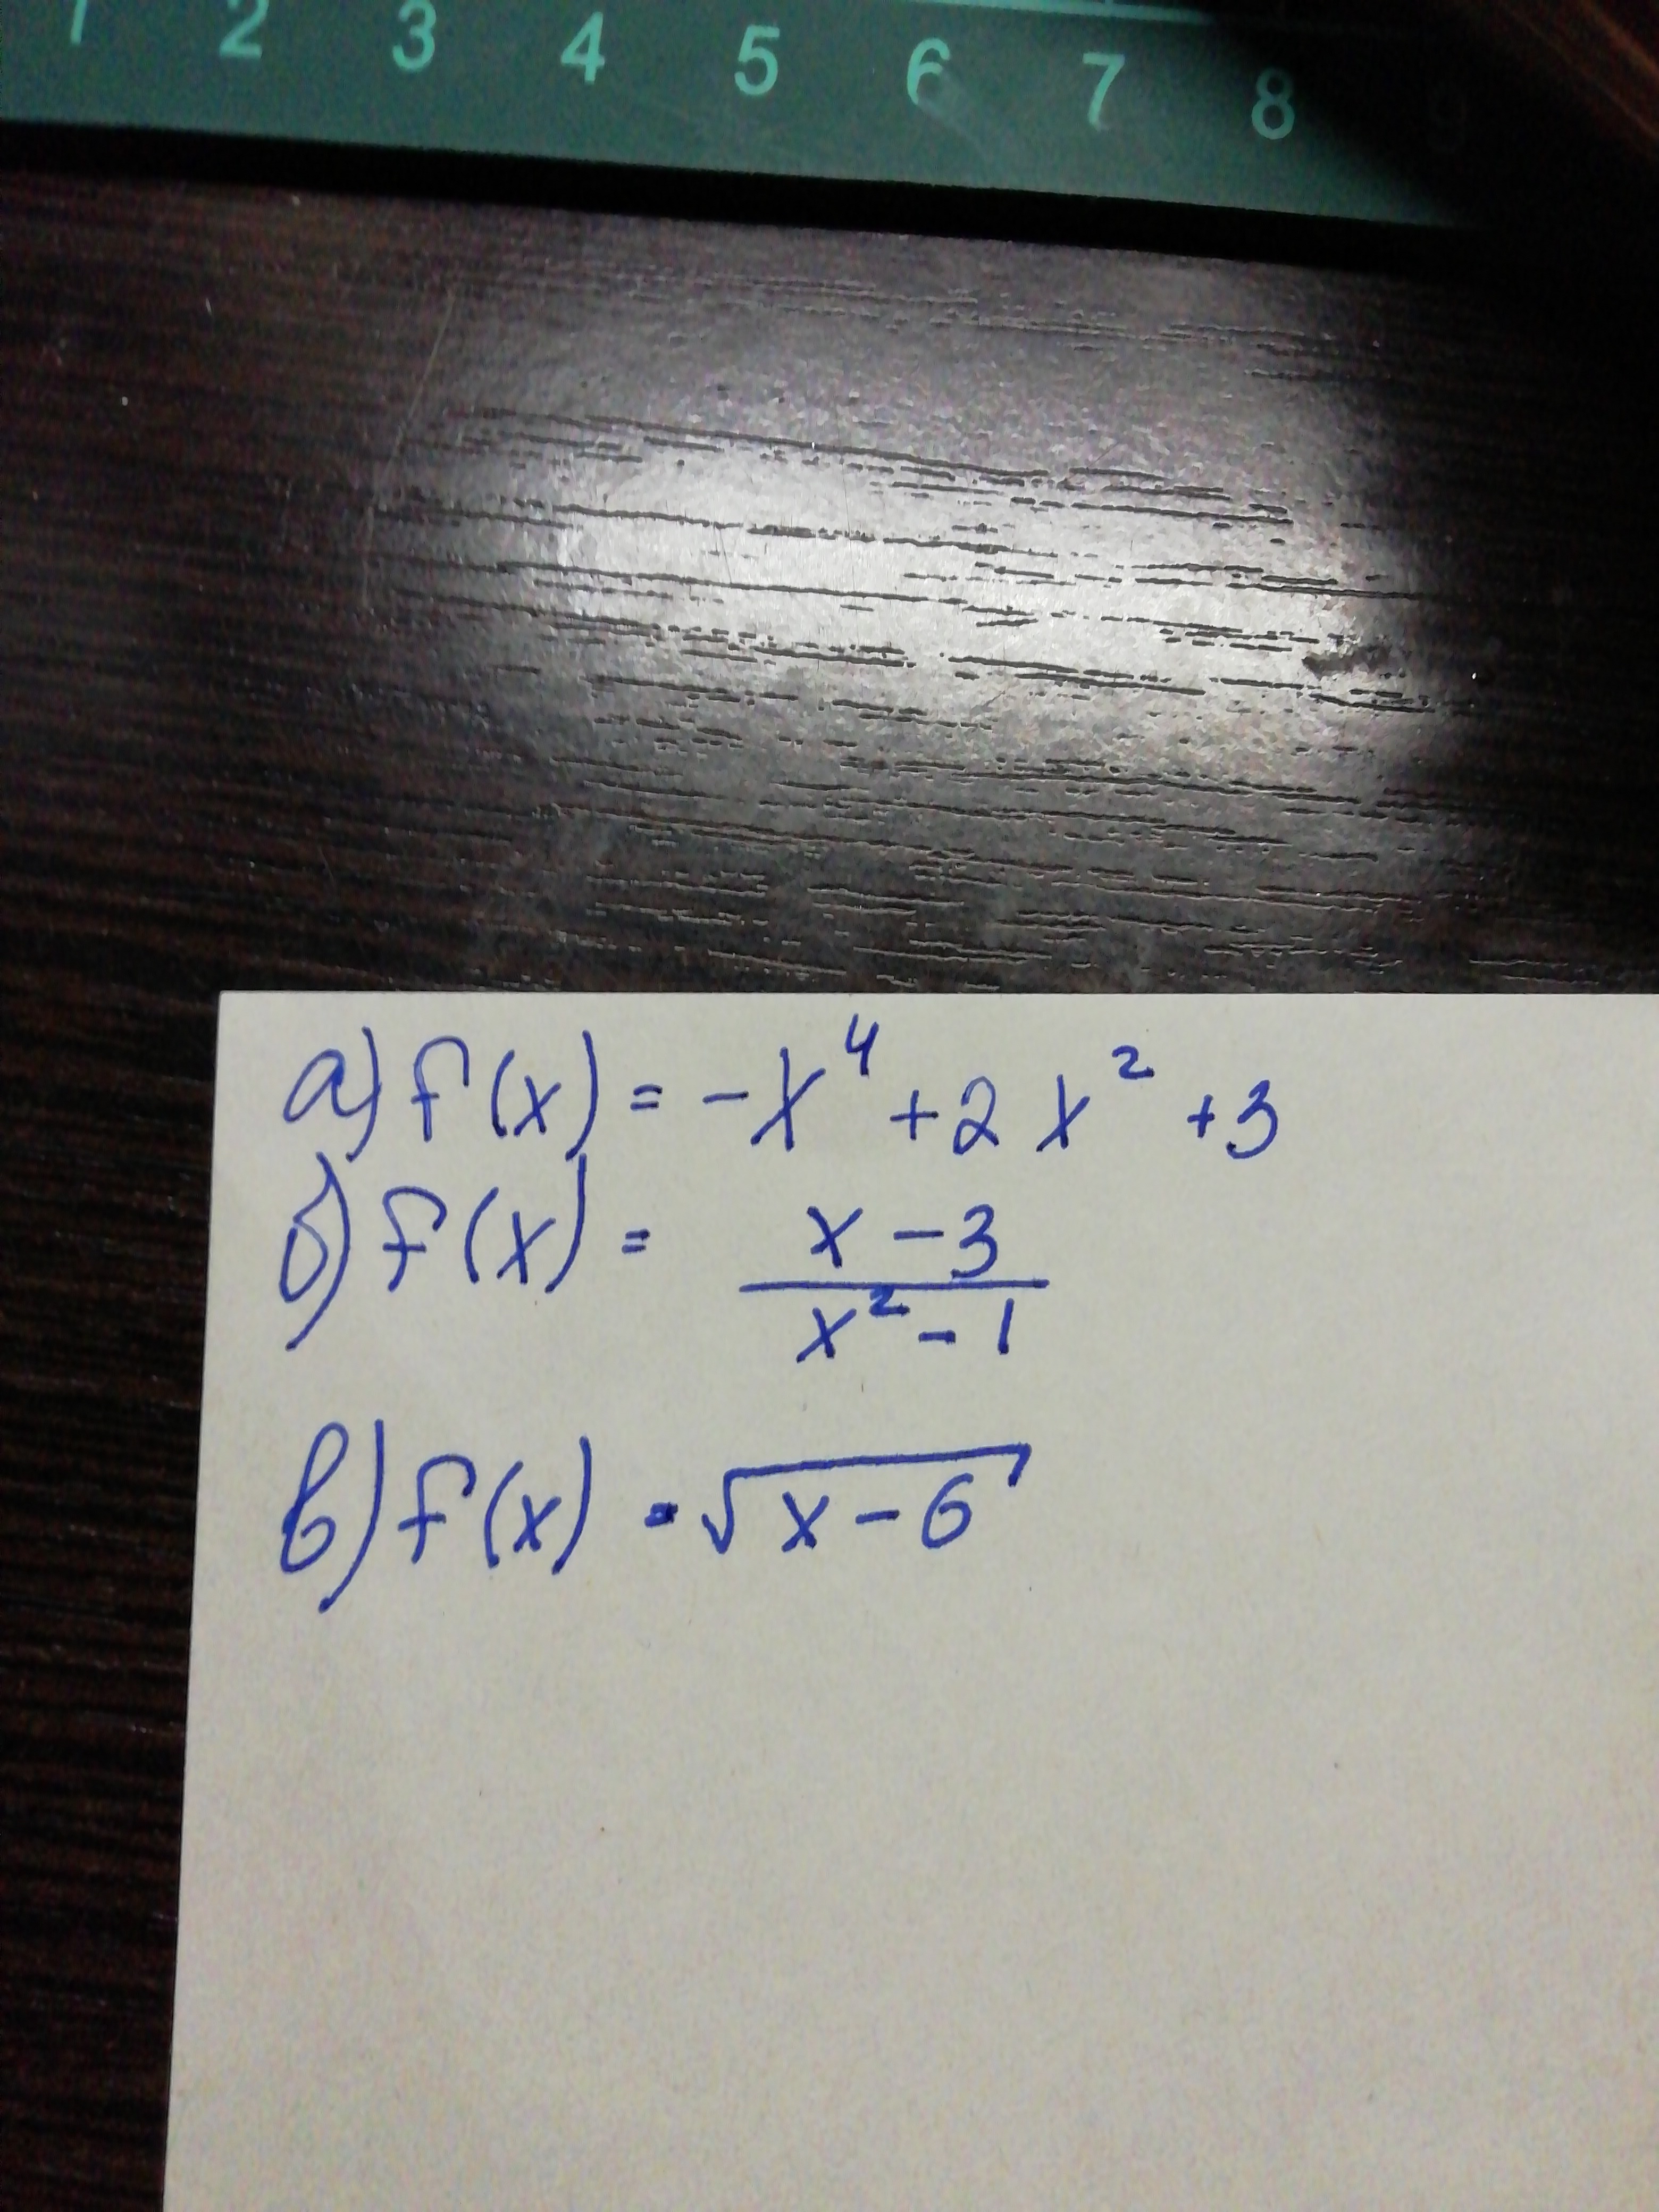 1 2 3 4 5 6 7 8 9
а) f(x) = -x⁴ + 2x² + 3
б) f(x) = (x - 3)/(x² - 1)
в) f(x) = √(x - 6)